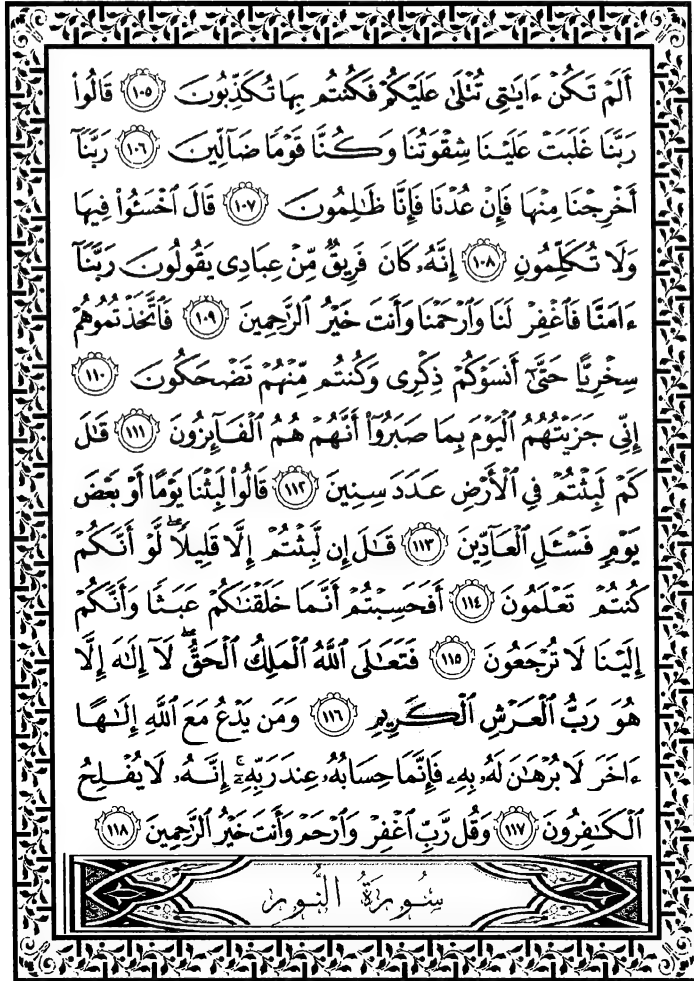 أَلَمْ تَكُنْ ءَايَٰتِى تُتْلَىٰ عَلَيْكُمْ فَكُنتُم بِهَا تُكَذِّبُونَ ١٠٥ قَالُوا۟
رَبَّنَا غَلَبَتْ عَلَيْنَا شِقْوَتُنَا وَكُنَّا قَوْمًا ضَآلِّينَ ١٠٦ رَبَّنَآ
أَخْرِجْنَا مِنْهَا فَإِنْ عُدْنَا فَإِنَّا ظَٰلِمُونَ ١٠٧ قَالَ ٱخْسَـُٔوا۟ فِيهَا
وَلَا تُكَلِّمُونِ ١٠٨ إِنَّهُۥ كَانَ فَرِيقٌ مِّنْ عِبَادِى يَقُولُونَ رَبَّنَآ
ءَامَنَّا فَٱغْفِرْ لَنَا وَٱرْحَمْنَا وَأَنتَ خَيْرُ ٱلرَّٰحِمِينَ ١٠٩ فَٱتَّخَذْتُمُوهُمْ
سِخْرِيًّا حَتَّىٰٓ أَنسَوْكُمْ ذِكْرِى وَكُنتُم مِّنْهُمْ تَضْحَكُونَ ١١٠
إِنِّى جَزَيْتُهُمُ ٱلْيَوْمَ بِمَا صَبَرُوٓا۟ أَنَّهُمْ هُمُ ٱلْفَآئِزُونَ ١١١ قَٰلَ
كَمْ لَبِثْتُمْ فِى ٱلْأَرْضِ عَدَدَ سِنِينَ ١١٢ قَالُوا۟ لَبِثْنَا يَوْمًا أَوْ بَعْضَ
يَوْمٍ فَسْـَٔلِ ٱلْعَآدِّينَ ١١٣ قَٰلَ إِن لَّبِثْتُمْ إِلَّا قَلِيلًا ۖ لَّوْ أَنَّكُمْ
كُنتُمْ تَعْلَمُونَ ١١٤ أَفَحَسِبْتُمْ أَنَّمَا خَلَقْنَٰكُمْ عَبَثًا وَأَنَّكُمْ
إِلَيْنَا لَا تُرْجَعُونَ ١١٥ فَتَعَٰلَى ٱللَّهُ ٱلْمَلِكُ ٱلْحَقُّ ۖ لَآ إِلَٰهَ إِلَّا
هُوَ رَبُّ ٱلْعَرْشِ ٱلْكَرِيمِ ١١٦ وَمَن يَدْعُ مَعَ ٱللَّهِ إِلَٰهًا
ءَاخَرَ لَا بُرْهَٰنَ لَهُۥ بِهِۦ فَإِنَّمَا حِسَابُهُۥ عِندَ رَبِّهِۦٓ ۚ إِنَّهُۥ لَا يُفْلِحُ
ٱلْكَٰفِرُونَ ١١٧ وَقُل رَّبِّ ٱغْفِرْ وَٱرْحَمْ وَأَنتَ خَيْرُ ٱلرَّٰحِمِينَ ١١٨
سُورَةُ النُّورِ